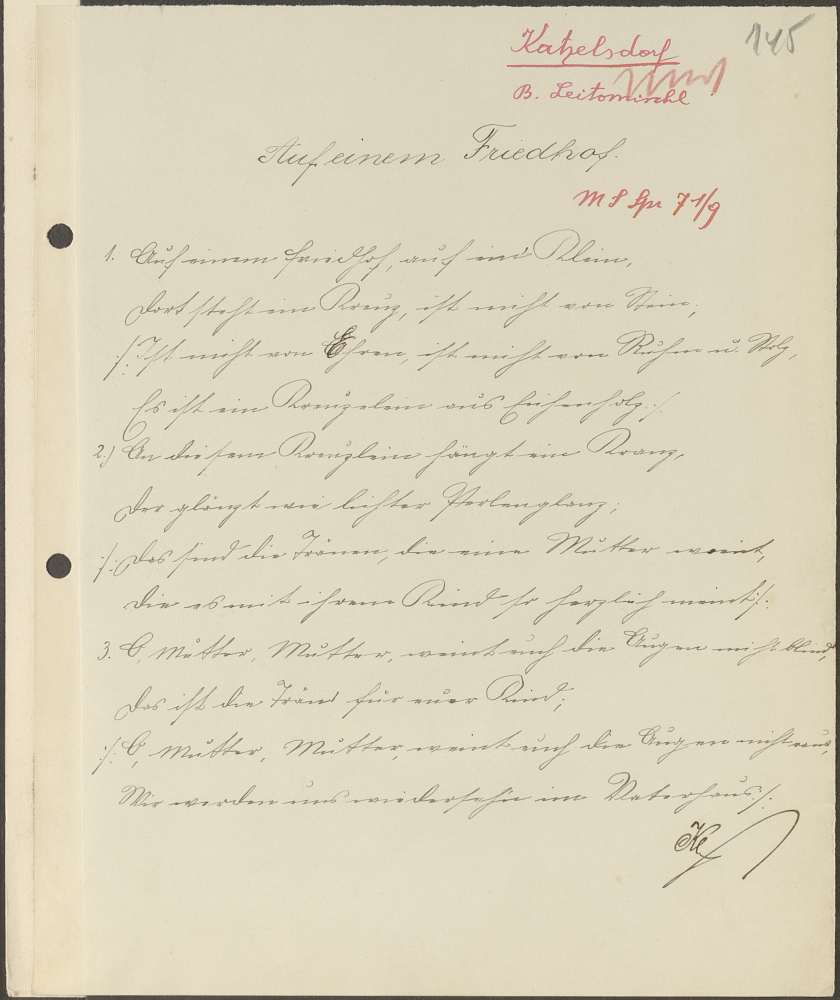 145
Katzelsdorf
B. Leitomischl
Auf einem Friedhof.
M S Spr 71/9
1. Auf einem Friedhof, auf ein' Klein,
Dort steht ein Kreuz, ist nicht von Stein;
:/: Ist nicht von Ehren, ist nicht von Ruhm u. Stolz,
Es ist ein Kreuzelein aus Eichenholz :/:
2.) An diesem Kreuzlein hängt ein Kranz,
Der glänzt wie lichter Perlenglanz;
:/: Das sind die Tränen, die eine Mutter weint,
Die es mit ihrem Kind so herzlich meint :/:
3. O, Mutter, Mutter, weint euch die Augen nicht blind,
Das ist die Trän' für euer Kind;
:/: O, Mutter, Mutter, weint euch die Augen nicht raus,
Wir werden uns wiedersehn im Vaterhaus :/: